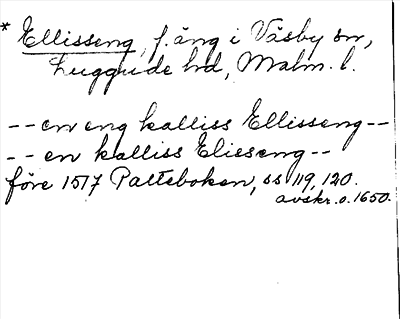 * Ellisseng, f. äng i Väsby sn,
Luggude hd, Malm. l.
-- en eng kalliss Ellisseng --
-- en kalliss Elieseng --
före 1517 Palteboken, ss 119, 120.
avskr. o. 1650.